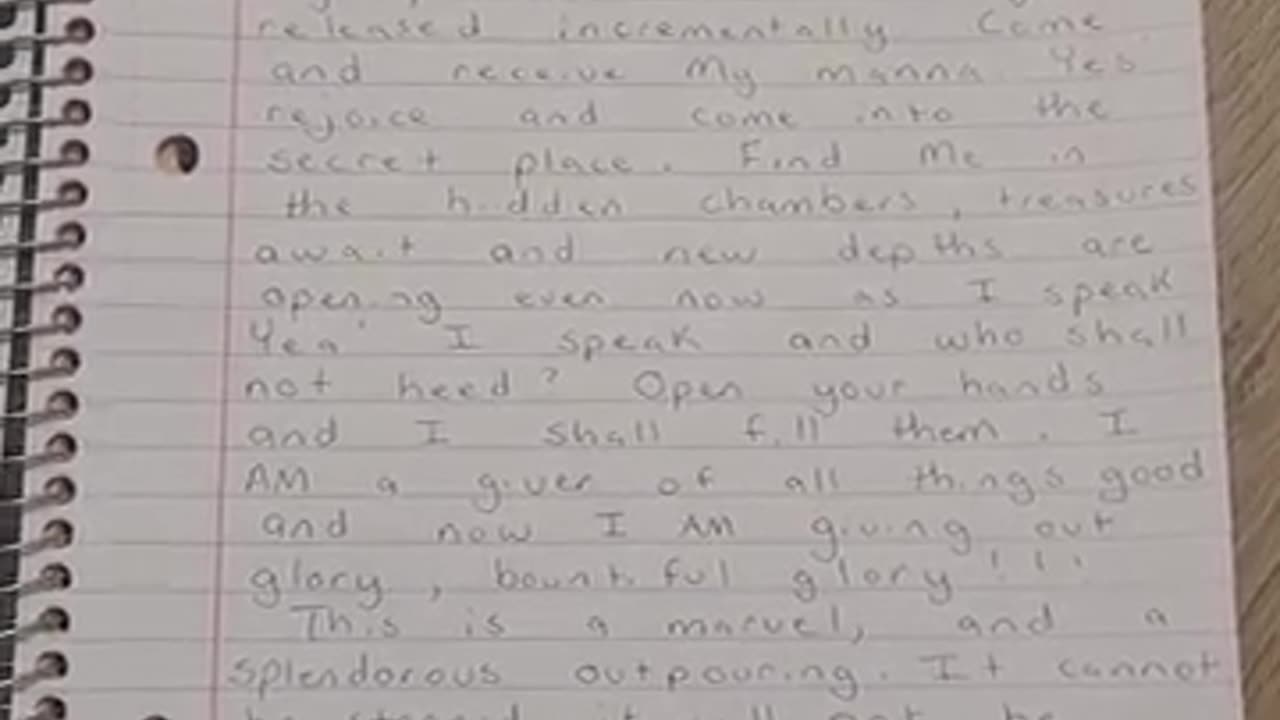 released incrementally Come
and receive My manna. Yes
rejoice and come into the
secret place. Find Me in
the hidden chambers, treasures
await and new depths are
opening even now as I speak
Yea! I speak and who shall
not heed? Open your hands
and I shall fill them. I
AM a giver of all things good
and now I AM giving out
glory, bountiful glory!!!
This is a marvel, and a
splendorous outpouring. It cannot